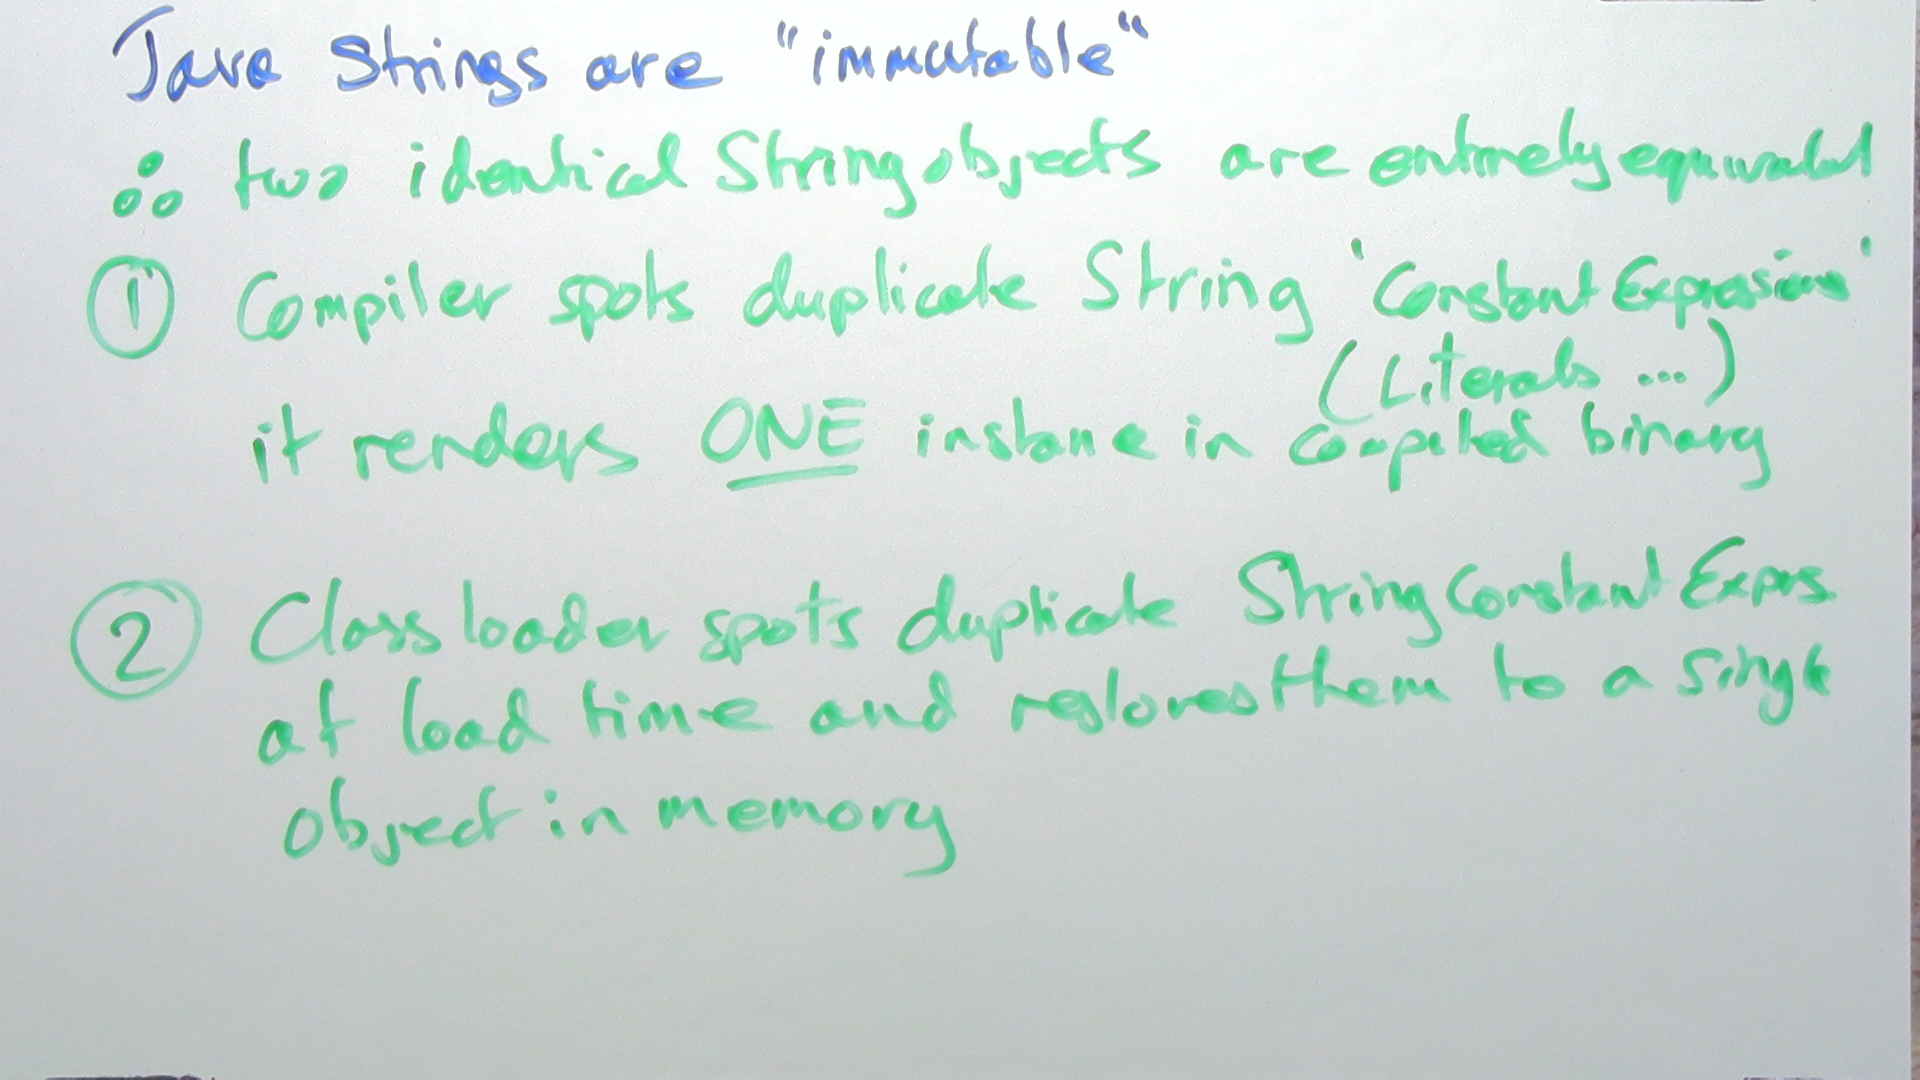 Java Strings are "immutable"
∴ two identical String objects are entirely equivalent
① Compiler spots duplicate String 'Constant Expressions'
(Literals ...)
it renders ONE instance in compiled binary
② Class loader spots duplicate String Constant Exprs
at load time and restores them to a single
object in memory